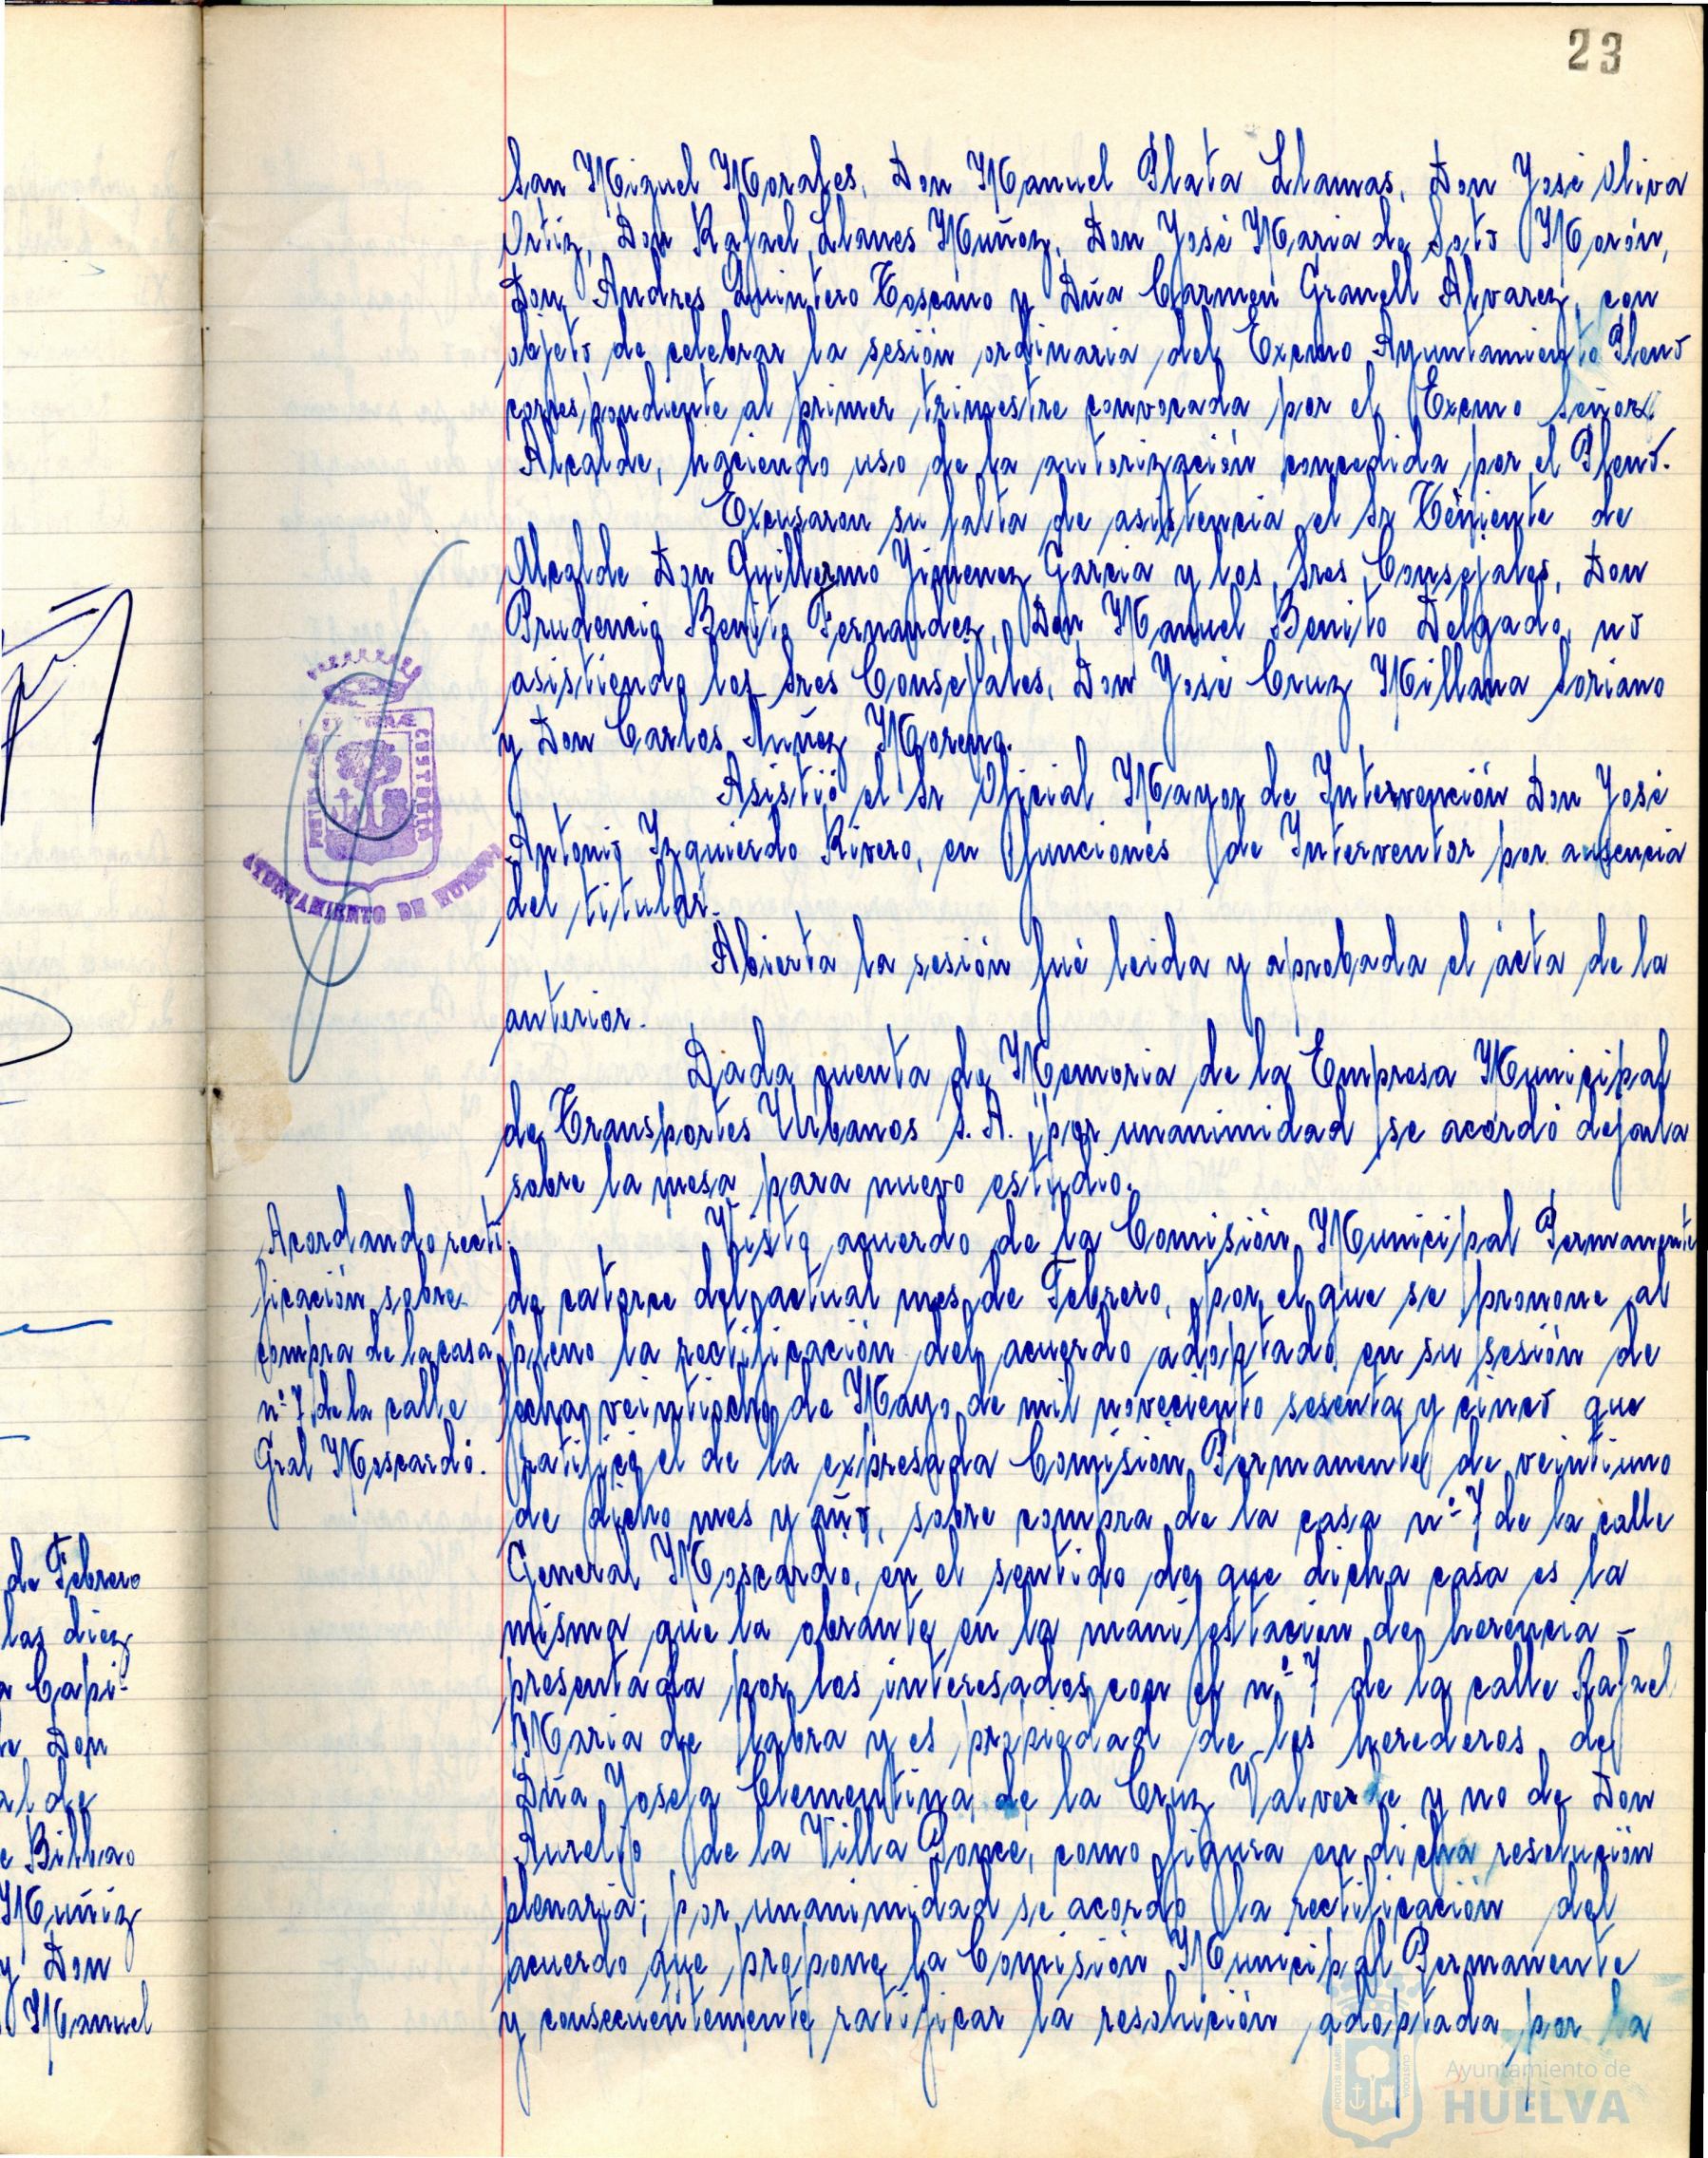 23
San Miguel Morales, Don Manuel Plata Llamas, Don José Oliva
Ortiz, Don Rafael Llanes Muñoz, Don José Maria de Soto Morón,
Don Andres Quintero Toscano y Dña Carmen Granell Alvarez, con
objeto de celebrar la sesión ordinaria del Excmo Ayuntamiento Pleno
correspondiente al primer trimestre convocada por el Excmo Señor
Alcalde, haciendo uso de la autorización concedida por el Pleno.
Excusaron su falta de asistencia el Sr Teniente de
Alcalde Don Guillermo Jimenez Garcia y los Sres Consejales, Don
Prudencio Benito Fernandez, Don Manuel Benito Delgado, no
asistiendo los Sres Consejales, Don José Cruz Millana Soriano
y Don Carlos Nuñez Moreno.
Asistió el Sr Oficial Mayor de Intervención Don José
Antonio Izquierdo Rivero, en funciones de Interventor por ausencia
del titular.
Abierta la sesión fué leida y aprobada el acta de la
anterior.
Dada cuenta de Memoria de la Empresa Municipal
de Transportes Urbanos S.A., por unanimidad se acordó dejarla
sobre la mesa para nuevo estudio.
Acordando recti-
ficación sobre
compra de la casa
nº 7 de la calle
Gral Moscardó.
Visto acuerdo de la Comisión Municipal Permanente
de catorce del actual mes de Febrero, por el que se pronone al
pleno la rectificación del acuerdo adoptado en su sesión de
fecha veintiocho de Mayo de mil noveciento sesenta y cinco que
ratificó el de la expresada Comisión Permanente de veintiuno
de dicho mes y año, sobre compra de la casa nº 7 de la calle
General Moscardo, en el sentido de que dicha casa es la
misma que la obrante en la manifestación de herencia -
presentada por los interesados con el nº 7 de la calle Rafael
Maria de Labra y es propiedad de los herederos de
Dña Josefa Clementina de la Cruz Valverde y no de Don
Aurelio de la Villa Ponce, como figura en dicha resolución
plenaria; por unanimidad se acordo la rectificación del
acuerdo que propone la Comisión Municipal Permanente
y consecuentemente ratificar la resolución adoptada por la
AYUNTAMIENTO DE HUELVA
de Febrero
las diez
Capi-
Don
al de
Bilbao
Muñiz
y Don
Manuel
Ayuntamiento de
HUELVA